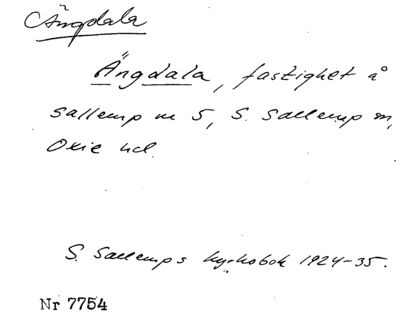 Ängdala
Ängdala, fastighet å
Sallerup nr 5, S. Sallerup sn,
Oxie hd.
S. Sallerups kyrkobok 1924-35.
Nr 7754